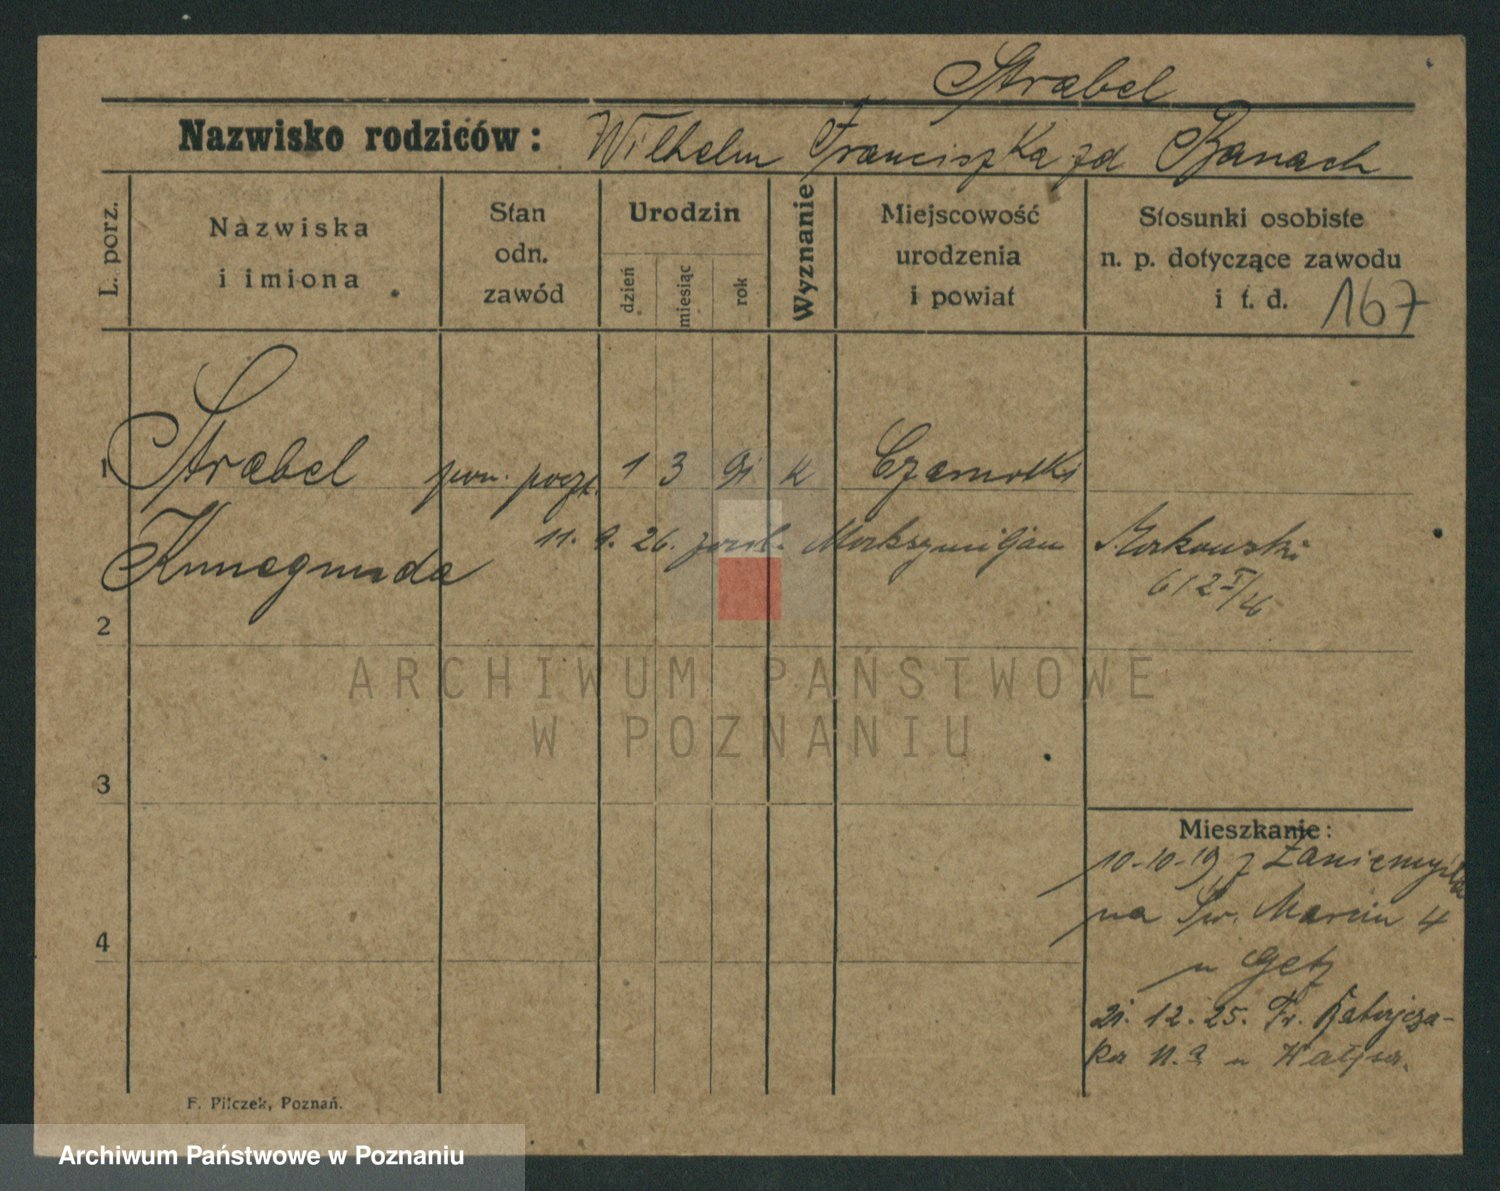 Strabel
Nazwisko rodziców: Wilhelm Franciszka zd Banach
L. porz.
Nazwiska
i imiona
Stan
odn.
zawód
Urodzin
dzień
miesiąc
rok
Wyznanie
Miejscowość
urodzenia
i powiat
Stosunki osobiste
n. p. dotyczące zawodu
i t. d. 167
1 Strabel pom. poczt. 1 3 91 k Czarnotki
Kunegunda 11. 9. 26. Maksymiljan Markowski
612 I/26
2
ARCHIWUM PAŃSTWOWE
W POZNANIU
3
Mieszkanie:
10-10-19 z Zaniemyśla
na Św. Marcin 4
u Getz
21. 12. 25. Fr. Ratajcza-
ka N.
4
F. Pilczek, Poznań.
Archiwum Państwowe w Poznaniu